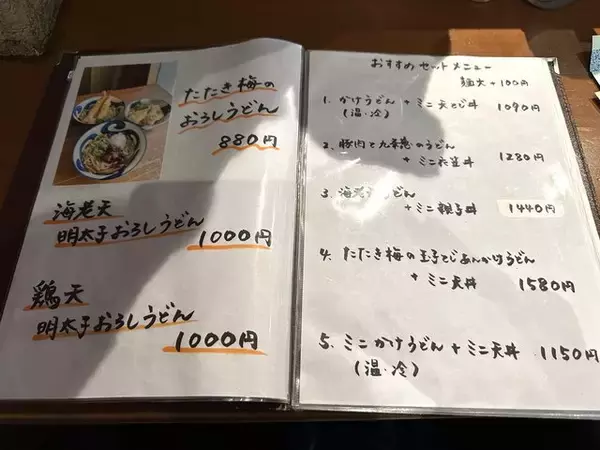 たたき梅の
おろしうどん
880円
海老天
明太子おろしうどん 1000円
鶏天
明太子おろしうどん
1000円
おすすめセットメニュー
麺大 +100円
1. かけうどん + ミニ天とじ丼 1090円
(温・冷)
2. 豚肉と九条葱のうどん
+ ミニ衣笠丼 1280円
3. 海老うどん
+ ミニ親子丼 1440円
4. たたき梅の玉子とじあんかけうどん
+ ミニ天丼 1580円
5. ミニかけうどん + ミニ天丼 1150円
(温・冷)